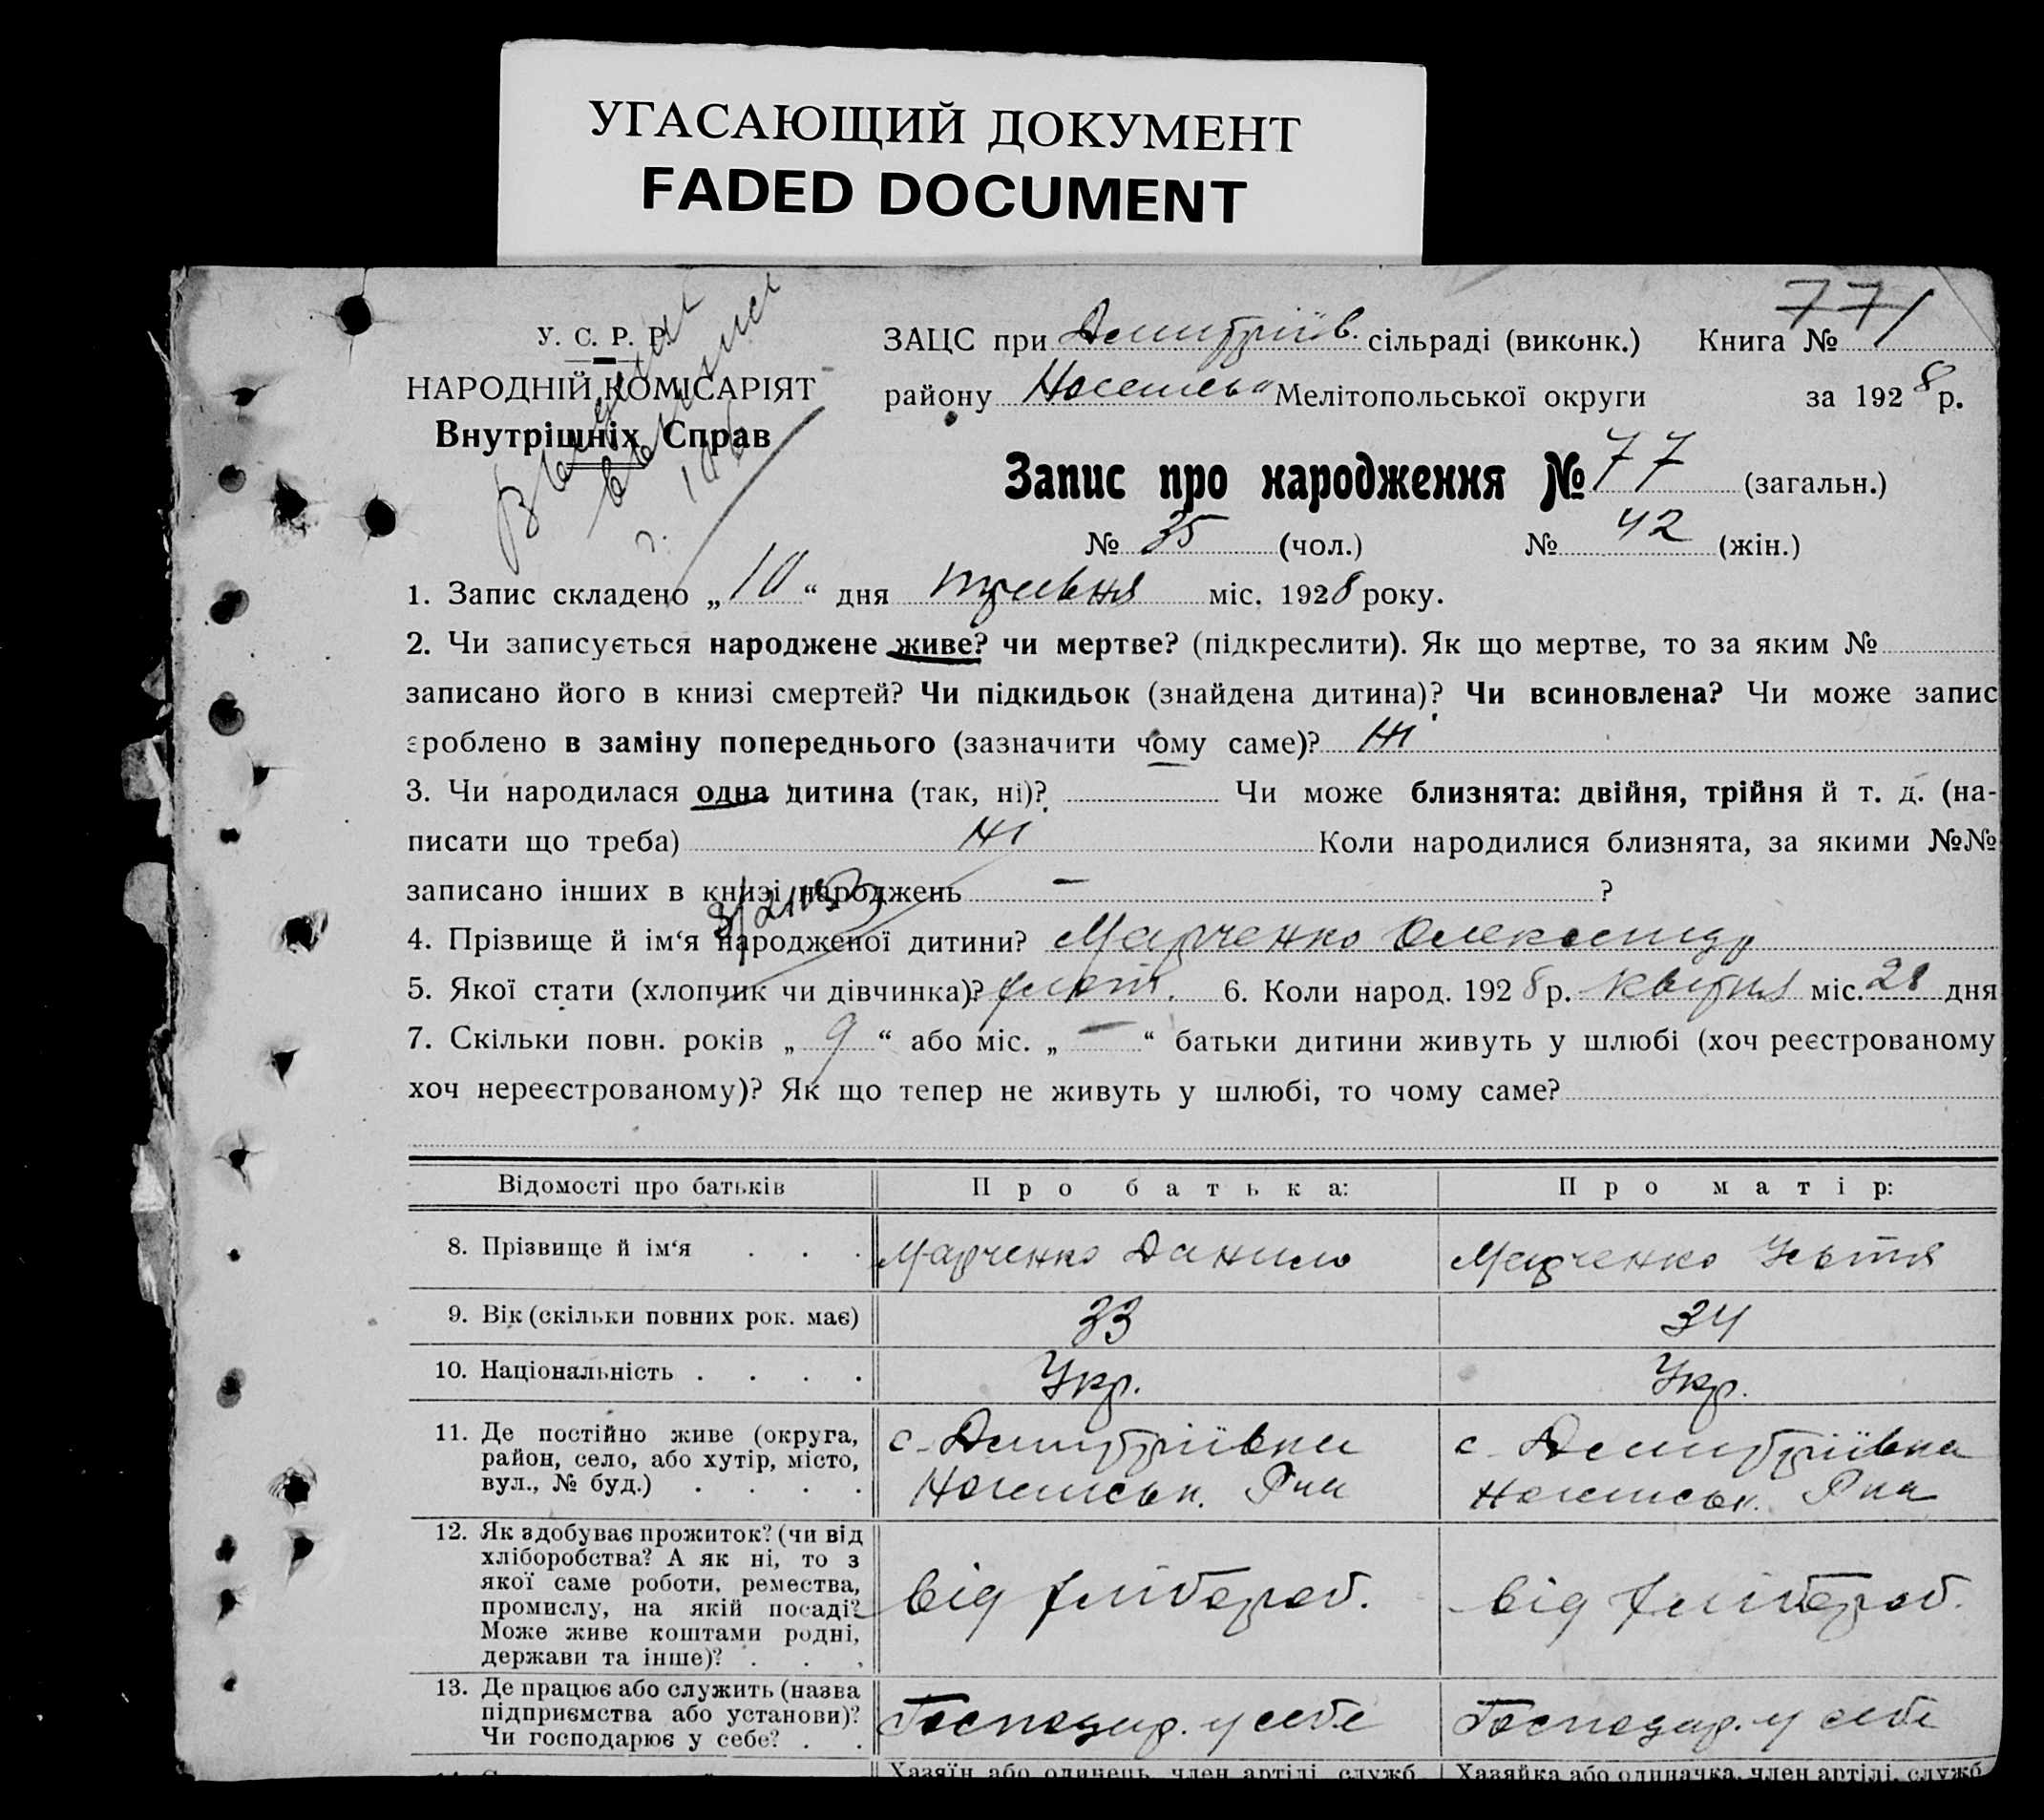 УГАСАЮЩИЙ ДОКУМЕНТ
FADED DOCUMENT
77
У. С. Р. Р.
НАРОДНІЙ КОМІСАРІЯТ
Внутрішніх Справ
ЗАЦС при Дмитріїв. сільраді (виконк.) Книга № 1
району Мелітопольської округи за 1928 р.
Запис про народження № 77 (загальн.)
№ 35 (чол.) № 42 (жін.)
1. Запис складено „10“ дня травня міс. 1928 року.
2. Чи записується народжене живе? чи мертве? (підкреслити). Як що мертве, то за яким №
записано його в книзі смертей? Чи підкидьок (знайдена дитина)? Чи всиновлена? Чи може запис
зроблено в заміну попереднього (зазначити чому саме)? Ні
3. Чи народилася одна дитина (так, ні)? Чи може близнята: двійня, трійня й т. д. (на-
писати що треба) Ні Коли народилися близнята, за якими №№
записано інших в книзі народжень — ?
4. Прізвище й ім‘я народженої дитини? Марченко Олександр
5. Якої стати (хлопчик чи дівчинка)? 6. Коли народ. 1928 р. квітня міс. 28 дня
7. Скільки повн. років „9“ або міс. „—“ батьки дитини живуть у шлюбі (хоч реєстрованому
хоч нереєстрованому)? Як що тепер не живуть у шлюбі, то чому саме?
Відомості про батьків Про батька: Про матір:
8. Прізвище й ім‘я . . . Марченко Данило Марченко Устя
9. Вік (скільки повних рок. має) 33 34
10. Національність . . . . Укр. Укр.
11. Де постійно живе (округа,
район, село, або хутір, місто,
вул., № буд.) . . . .
с. Дмитріївка с. Дмитріївка
12. Як здобуває прожиток? (чи від
хліборобства? А як ні, то з
якої саме роботи, ремества,
промислу, на якій посаді?
Може живе коштами родні,
держави та інше)? . . .
від хлібороб. від хлібороб.
13. Де працює або служить (назва
підприємства або установи)?
Чи господарює у себе? . .
Господар. у себе Господар. у себе
Хазяїн або одинець, член артілі, служб. Хазяйка або одиначка, член артілі, служб.